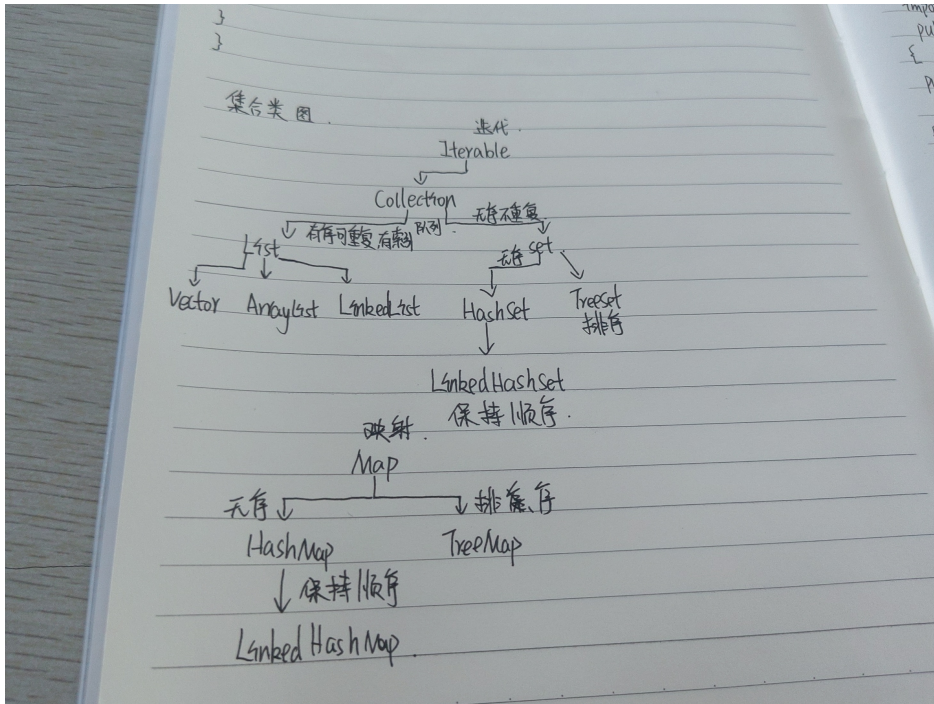 }
}
集合类图.
迭代.
Iterable
Collection
有序可重复 队列. 无序不重复
List 无序 Set
Vector ArrayList LinkedList HashSet TreeSet
排序
LinkedHashSet
保持顺序.
映射.
Map
无序 排序
HashMap TreeMap
保持顺序
LinkedHashMap.
{